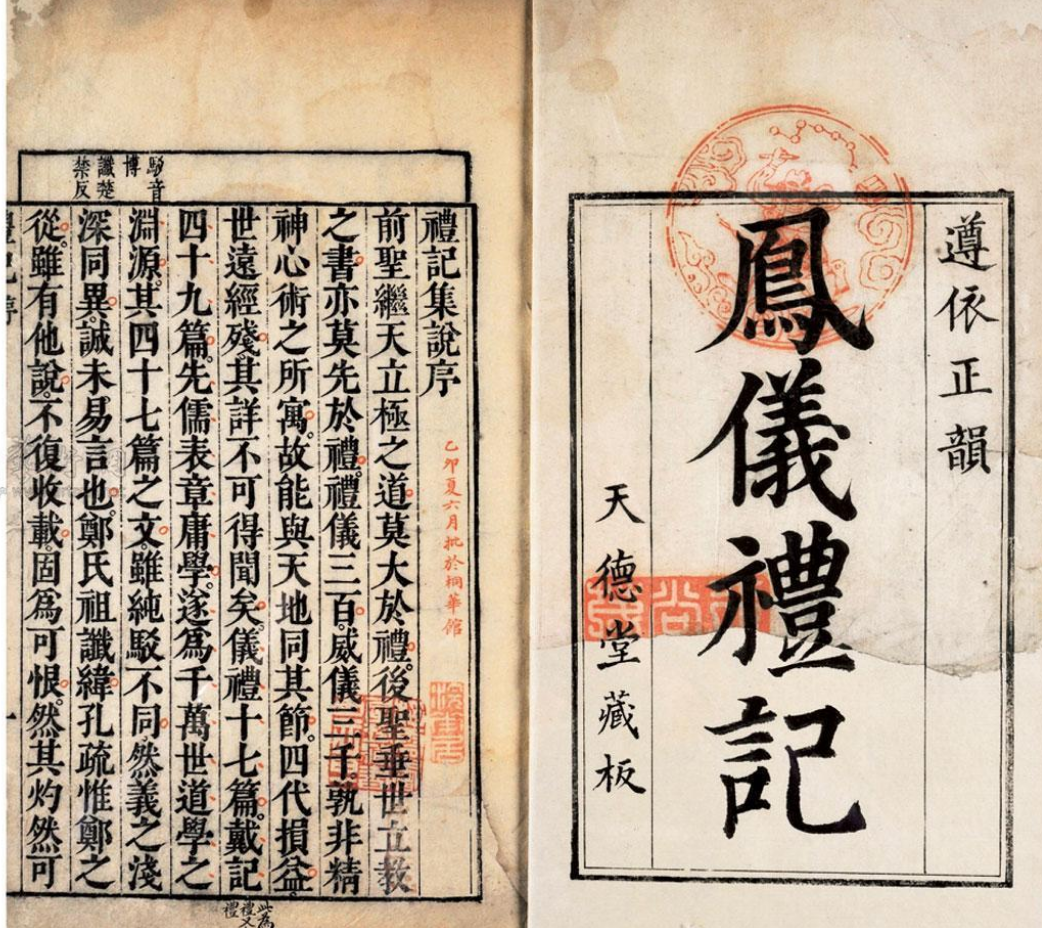 遵依正韻
鳳儀禮記
天德堂藏板
駮音
博
讖楚
禁反
禮記集說序
乙卯夏六月批於桐華館
前聖繼天立極之道莫大於禮。後聖垂世立教
之書亦莫先於禮。禮儀三百。威儀三千。孰非精
神心術之所寓。故能與天地同其節。四代損益。
世遠經殘。其詳不可得聞矣。儀禮十七篇。戴記
四十九篇。先儒表章庸學。遂爲千萬世道學之
淵源。其四十七篇之文。雖純駁不同。然義之淺
深同異。誠未易言也。鄭氏祖讖緯。孔疏惟鄭之
從。雖有他說。不復收載。固爲可恨。然其灼然可